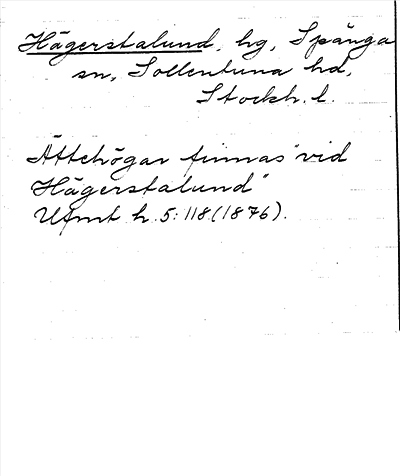 Hägerstalund, hg, Spånga
sn, Sollentuna hd,
Stockh. l.
Ättehögar finnas "vid
Hägerstalund"
Utmt h. 5:118 (1876).